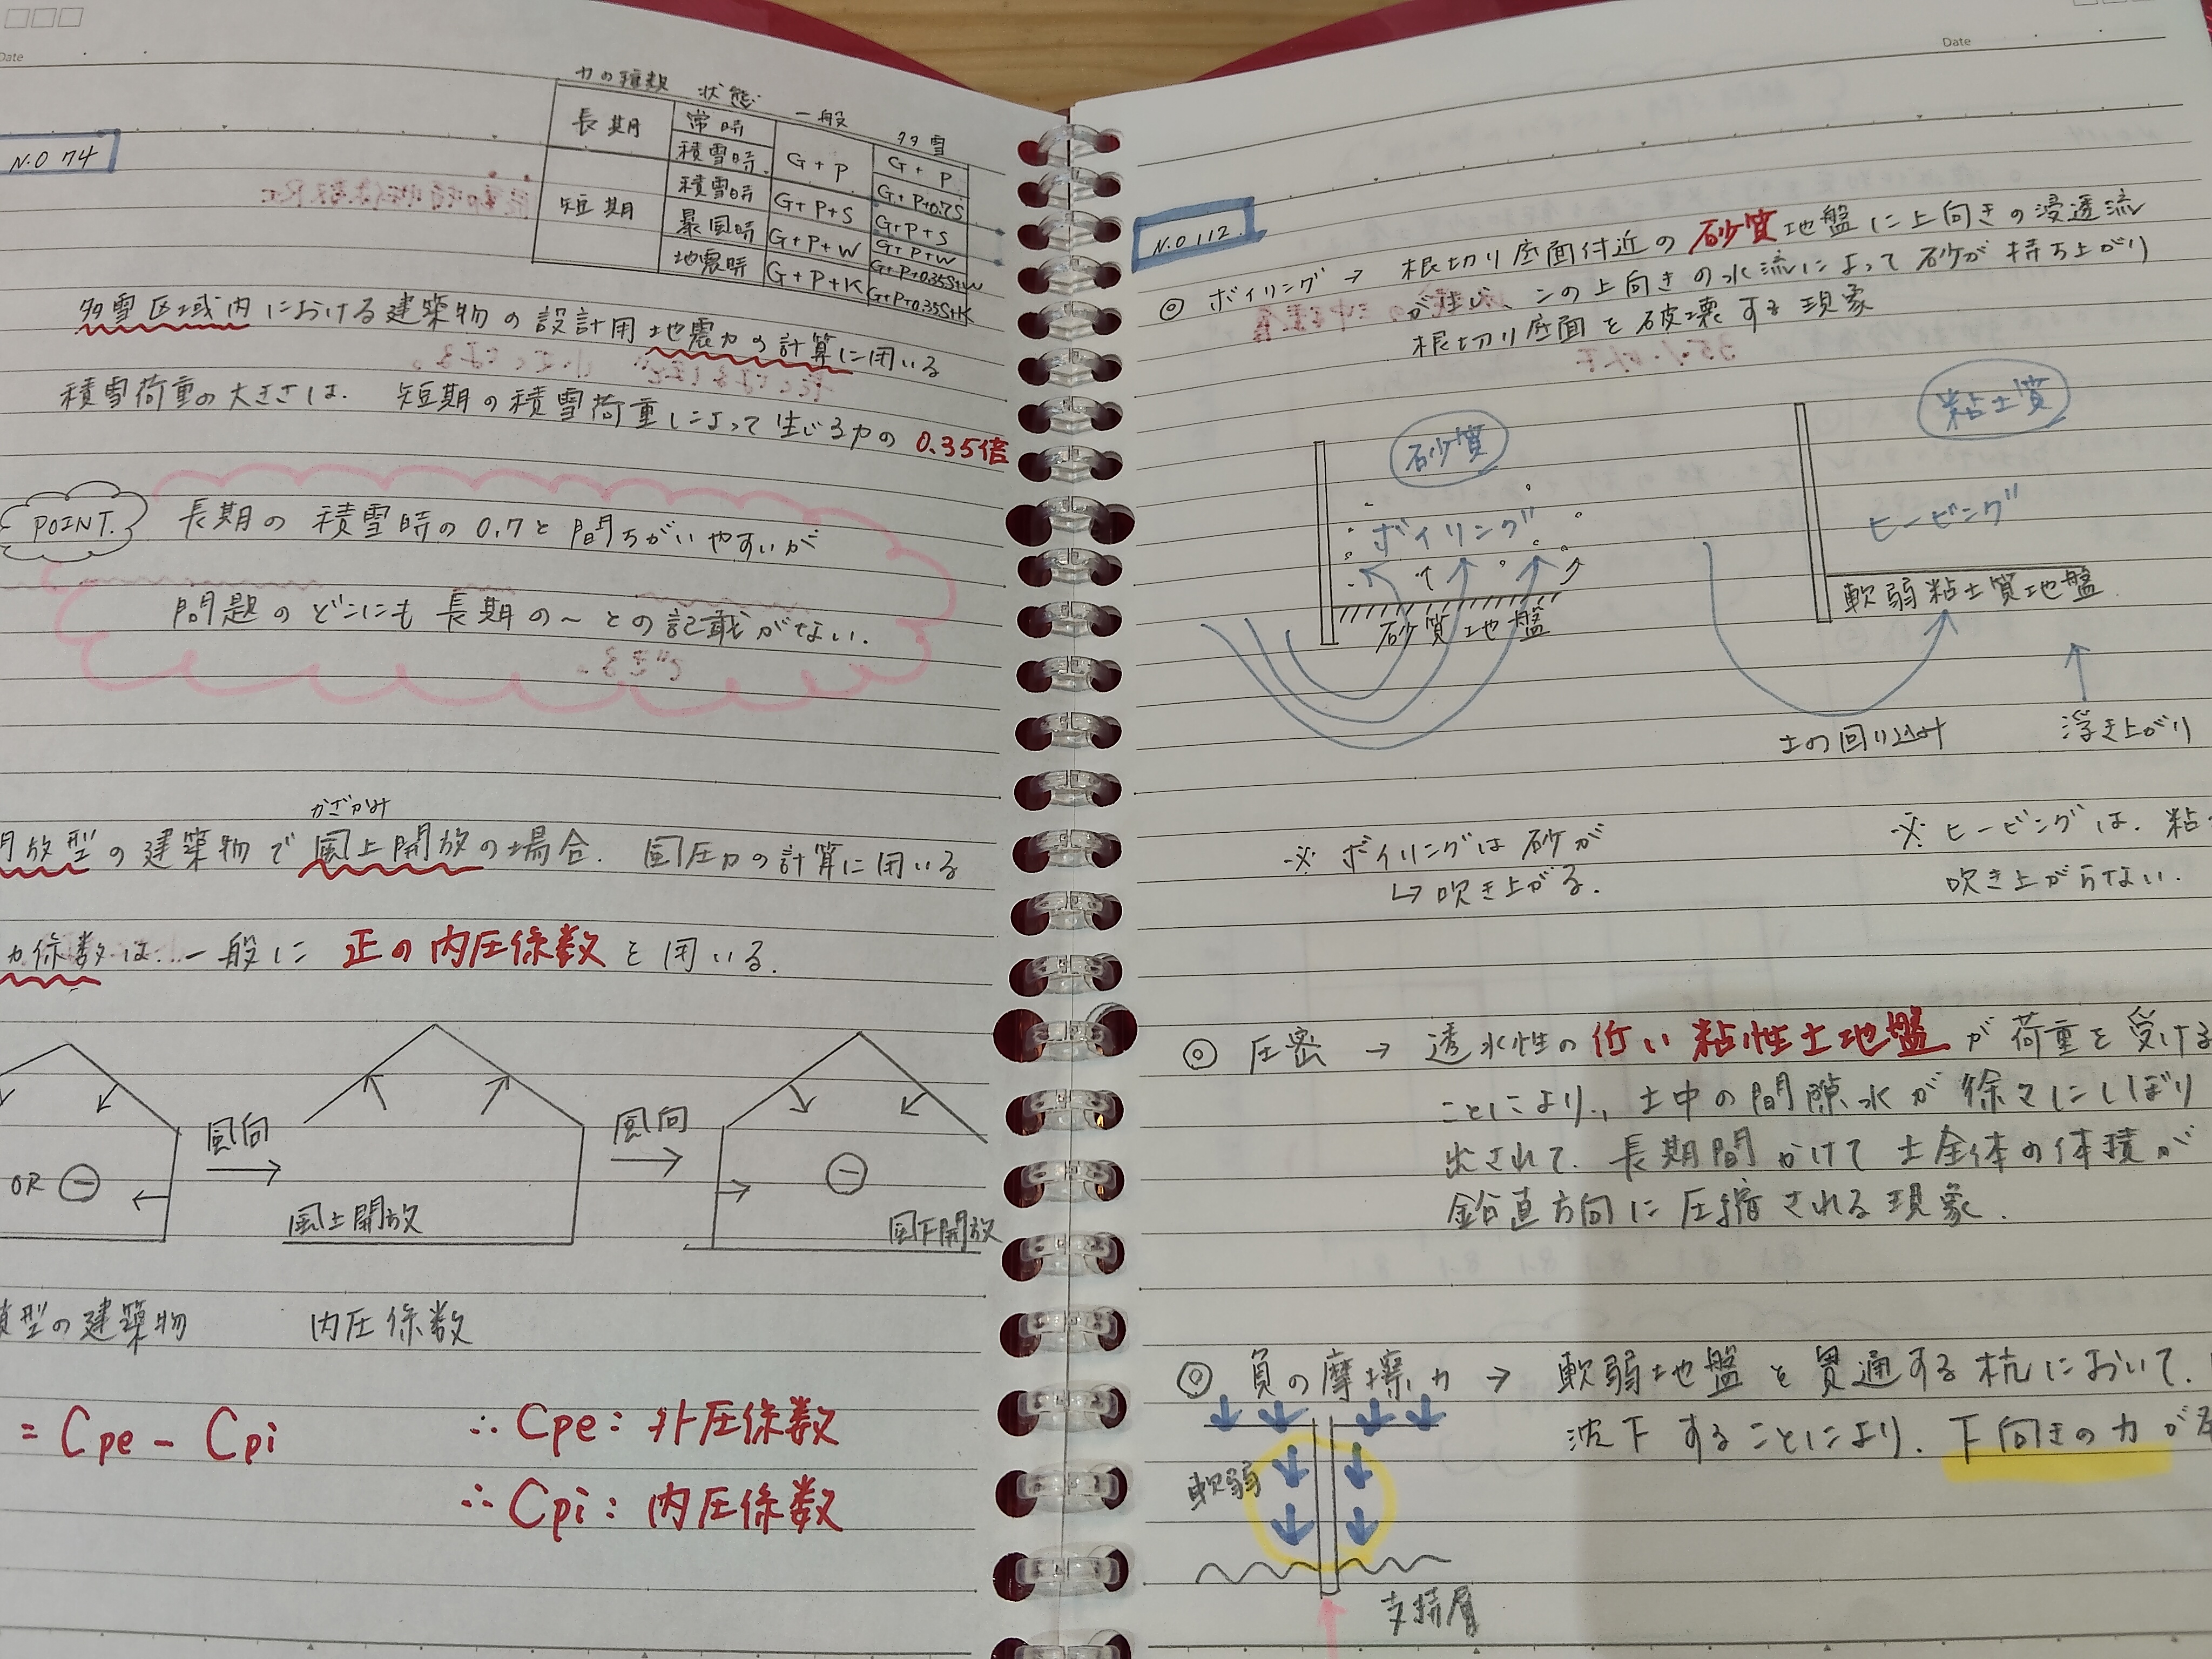 Date
NO 74
力の種類 状態 一般 多雪
長期 常時 G+P G+P
積雪時 G+P+0.7S
短期 積雪時 G+P+S G+P+S
暴風時 G+P+W G+P+W
G+P+0.35S+W
地震時 G+P+K G+P+0.35S+K
多雪区域内における建築物の設計用地震力の計算に用いる
積雪荷重の大きさは、短期の積雪荷重によって生じる力の0.35倍
POINT. 長期の積雪時の0.7と間ちがいやすいが
問題のどこにも長期の~との記載がない.
かざかみ
放型の建築物で風上開放の場合. 風圧力の計算に用いる
力係数は、一般に正の内圧係数を用いる.
OR ⊖
風向
→
風上開放
風向
→
⊖
風下開放
型の建築物 内圧係数
= Cpe - Cpi ∴ Cpe: 外圧係数
∴ Cpi: 内圧係数
Date
NO 112.
◎ ボイリング → 根切り底面付近の砂質地盤に上向きの浸透流
が生じ、この上向きの水流によって砂が持ち上がり
根切り底面を破壊する現象
砂質
ボイリング
砂質地盤
粘土質
ヒービング
軟弱粘土質地盤
土の回り込み
浮き上がり
※ ボイリングは砂が
↳ 吹き上がる.
※ ヒービングは. 粘
吹き上がらない.
◎ 圧密 → 透水性の低い粘性土地盤が荷重を受ける
ことにより、土中の間隙水が徐々にしぼり
出されて、長期間かけて土全体の体積が
鉛直方向に圧縮される現象.
◎ 負の摩擦力 → 軟弱地盤を貫通する杭において.
沈下することにより. 下向きの力が
軟弱
支持層